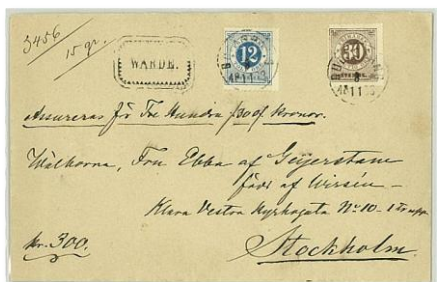 3456
15 gr.
WÄRDE.
12
30
Assureras för Tre Hundra Kronor.
Wälborna, Fru Ebba af Geijerstam
född af Wirsén
Klara Vestra Kyrkogata No 10. 1 Tr. upp
Kr. 300.
Stockholm